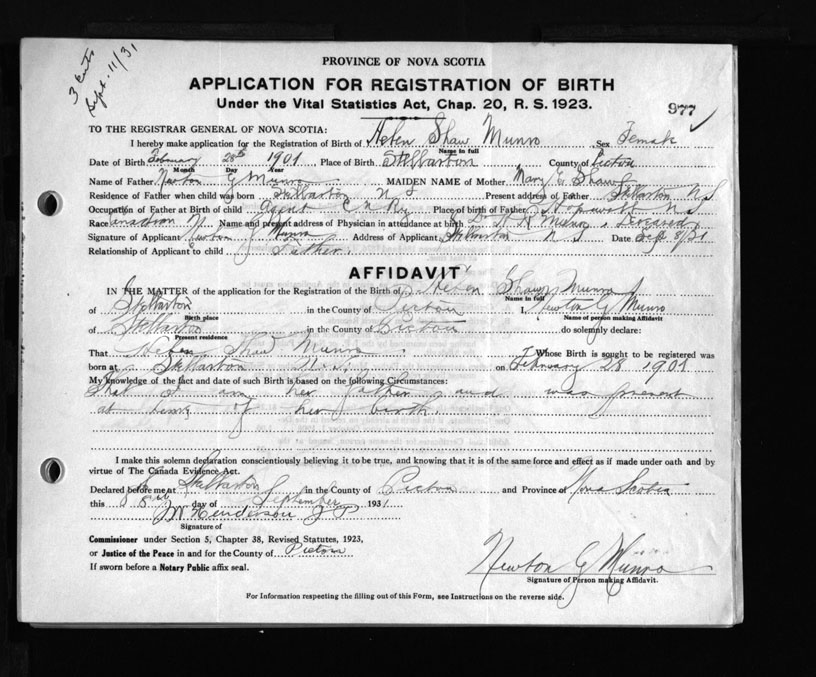 3 cents
Sept. 11/31
PROVINCE OF NOVA SCOTIA
APPLICATION FOR REGISTRATION OF BIRTH
Under the Vital Statistics Act, Chap. 20, R. S. 1923.
977
TO THE REGISTRAR GENERAL OF NOVA SCOTIA:
I hereby make application for the Registration of Birth of Helen Shaw Munro Sex Female
Name in full
Date of Birth February 28th 1901 Place of Birth Stellarton County of Pictou
Month Day Year
Name of Father Newton G Munro MAIDEN NAME of Mother Mary E Shaw
Residence of Father when child was born Stellarton N S Present address of Father Stellarton N S
Occupation of Father at Birth of child agent C N Ry Place of birth of Father N S
Race Name and present address of Physician in attendance at birth Dr Munro, Deceased
Signature of Applicant Newton G Munro Address of Applicant Stellarton N S Date Sept 8/31
Relationship of Applicant to child Father
AFFIDAVIT
IN THE MATTER of the application for the Registration of the Birth of Helen Shaw Munro
Name in full
of Stellarton in the County of Pictou I, Newton G Munro
Birth place Name of person making Affidavit
of Stellarton in the County of Pictou do solemnly declare:
Present residence
That Helen Shaw Munro Whose Birth is sought to be registered was
born at Stellarton N.S. on February 28 1901
My knowledge of the fact and date of such Birth is based on the following Circumstances:
That I am her father and was present
at time of her birth.
I make this solemn declaration conscientiously believing it to be true, and knowing that it is of the same force and effect as if made under oath and by
virtue of The Canada Evidence Act.
Declared before me at Stellarton in the County of Pictou and Province of Nova Scotia
this day of September 1931
Henderson J P
Signature of
Commissioner under Section 5, Chapter 38, Revised Statutes, 1923,
or Justice of the Peace in and for the County of Pictou
If sworn before a Notary Public affix seal.
Newton G Munro
Signature of Person making Affidavit.
For Information respecting the filling out of this Form, see Instructions on the reverse side.